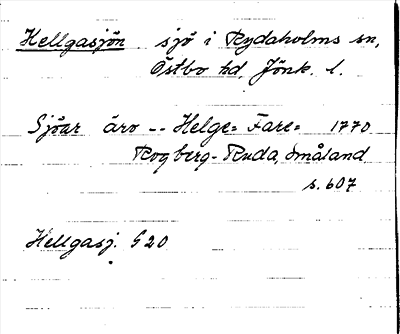 Hellgasjön sjö i Rydaholms sn,
Östbo hd, Jönk. l.
Sjöar äro -- Helge= Fare= 1770
Rogberg-Ruda, Småland
s. 607
Hellgasj. G20